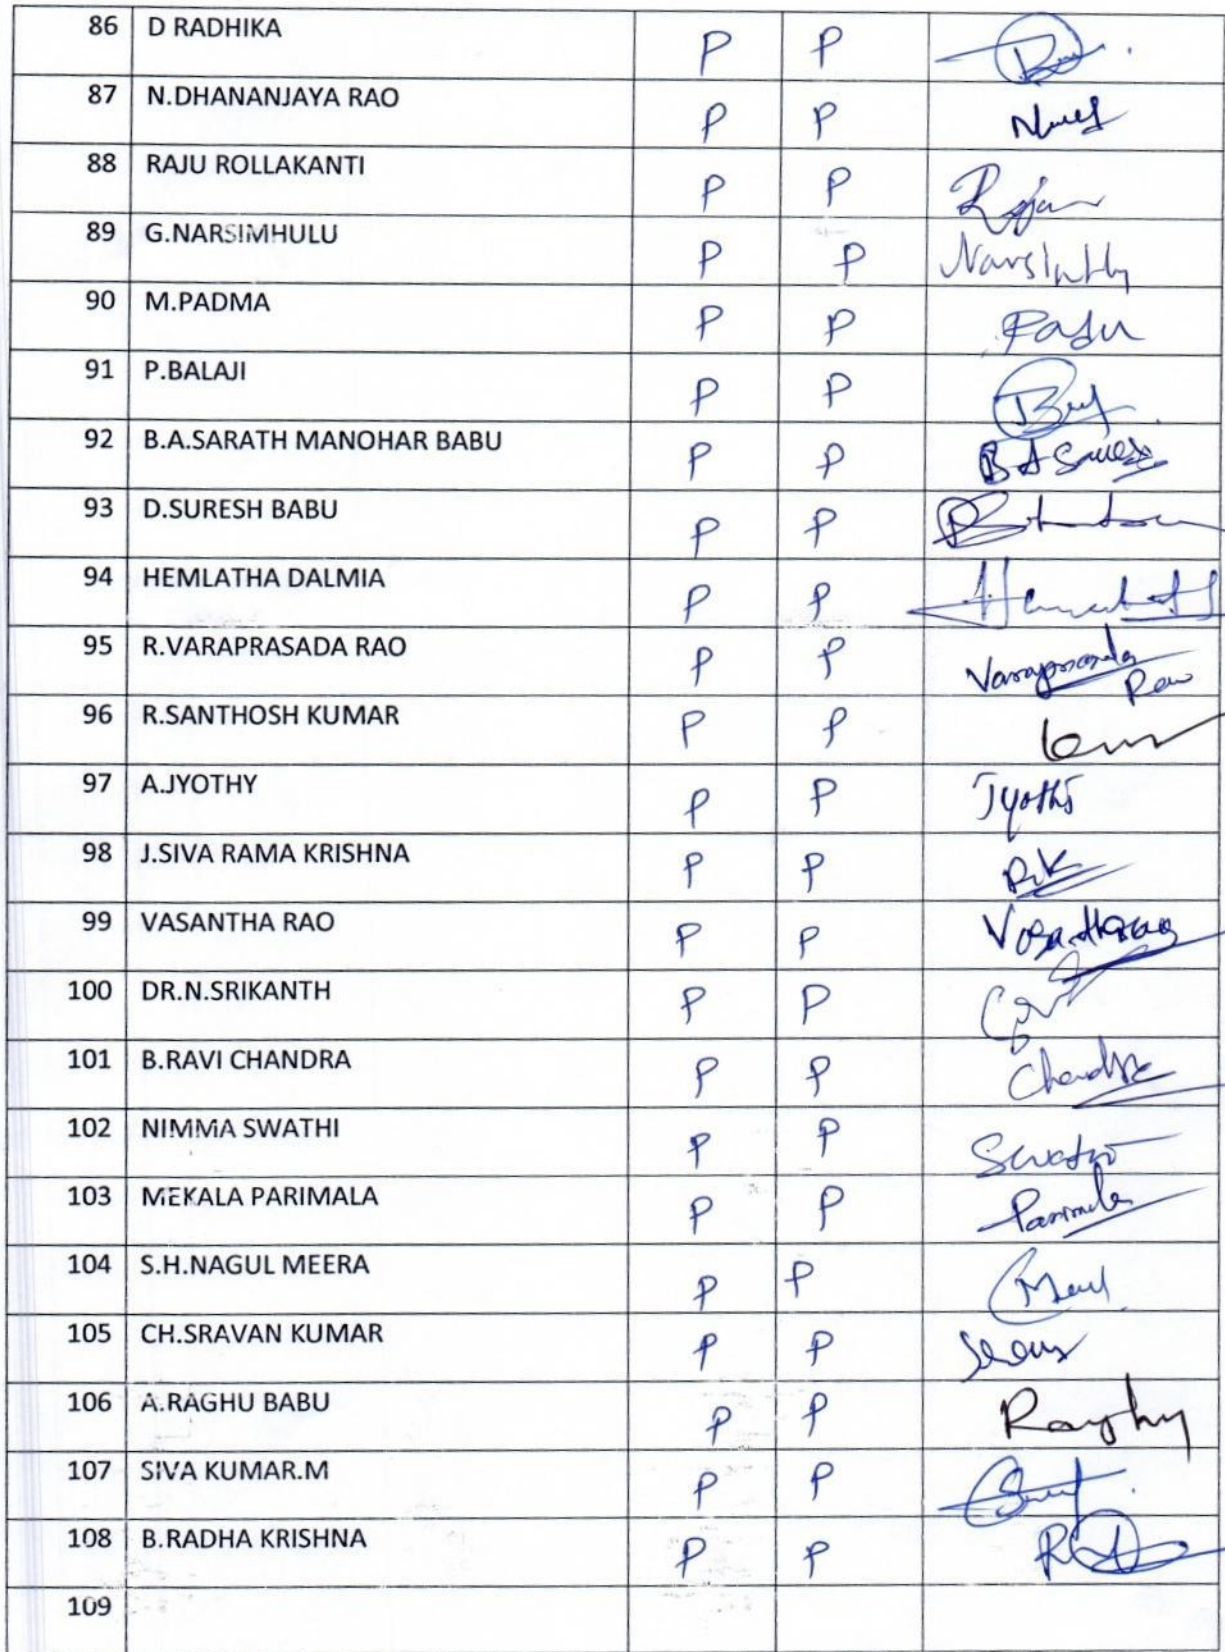 86 D RADHIKA P P
87 N.DHANANJAYA RAO P P
88 RAJU ROLLAKANTI P P Raju
89 G.NARSIMHULU P P
90 M.PADMA P P
91 P.BALAJI P P
92 B.A.SARATH MANOHAR BABU P P
93 D.SURESH BABU P P
94 HEMLATHA DALMIA P P
95 R.VARAPRASADA RAO P P Varaprasada Rao
96 R.SANTHOSH KUMAR P P
97 A.JYOTHY P P Jyothi
98 J.SIVA RAMA KRISHNA P P RK
99 VASANTHA RAO P P
100 DR.N.SRIKANTH P P
101 B.RAVI CHANDRA P P Chandra
102 NIMMA SWATHI P P Swathi
103 MEKALA PARIMALA P P Parimala
104 S.H.NAGUL MEERA P P
105 CH.SRAVAN KUMAR P P
106 A.RAGHU BABU P P Raghu
107 SIVA KUMAR.M P P
108 B.RADHA KRISHNA P P
109